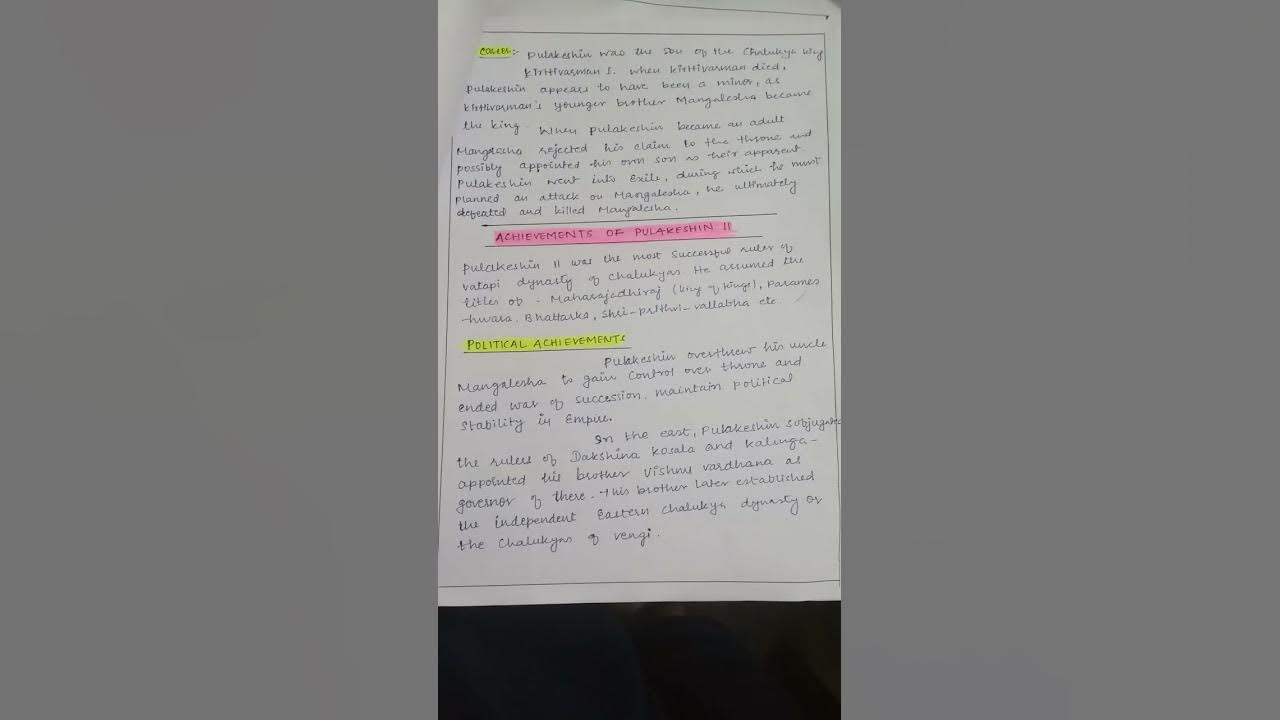 Career:- Pulakeshin was the son of the Chalukya king
Kirtivarman I. when kirtivarman died,
Pulakeshin appears to have been a minor, as
kirtivarman's younger brother Mangalesha became
the king. When Pulakeshin became an adult
Mangalesha rejected his claim to the throne and
possibly appointed his own son as heir apparent.
Pulakeshin went into exile, during which he must
planned an attack on Mangalesha, he ultimately
defeated and killed Mangalesha.
ACHIEVEMENTS OF PULAKESHIN II
Pulakeshin II was the most successful ruler of
vatapi dynasty of Chalukyas. He assumed the
titles of - Maharajadhiraj (king of kings), Parames
-hwara, Bhattarka, Shri-prithvi-vallabha etc.
POLITICAL ACHIEVEMENTS
Pulakeshin overthrew his uncle
Mangalesha to gain control over throne and
ended war of succession, maintain political
stability in Empire.
In the east, Pulakeshin subjugated
the rulers of Dakshina Kosala and Kalinga-
appointed his brother Vishnu vardhana as
governor of there. This brother later established
the independent Eastern Chalukya dynasty or
the Chalukyas of vengi.